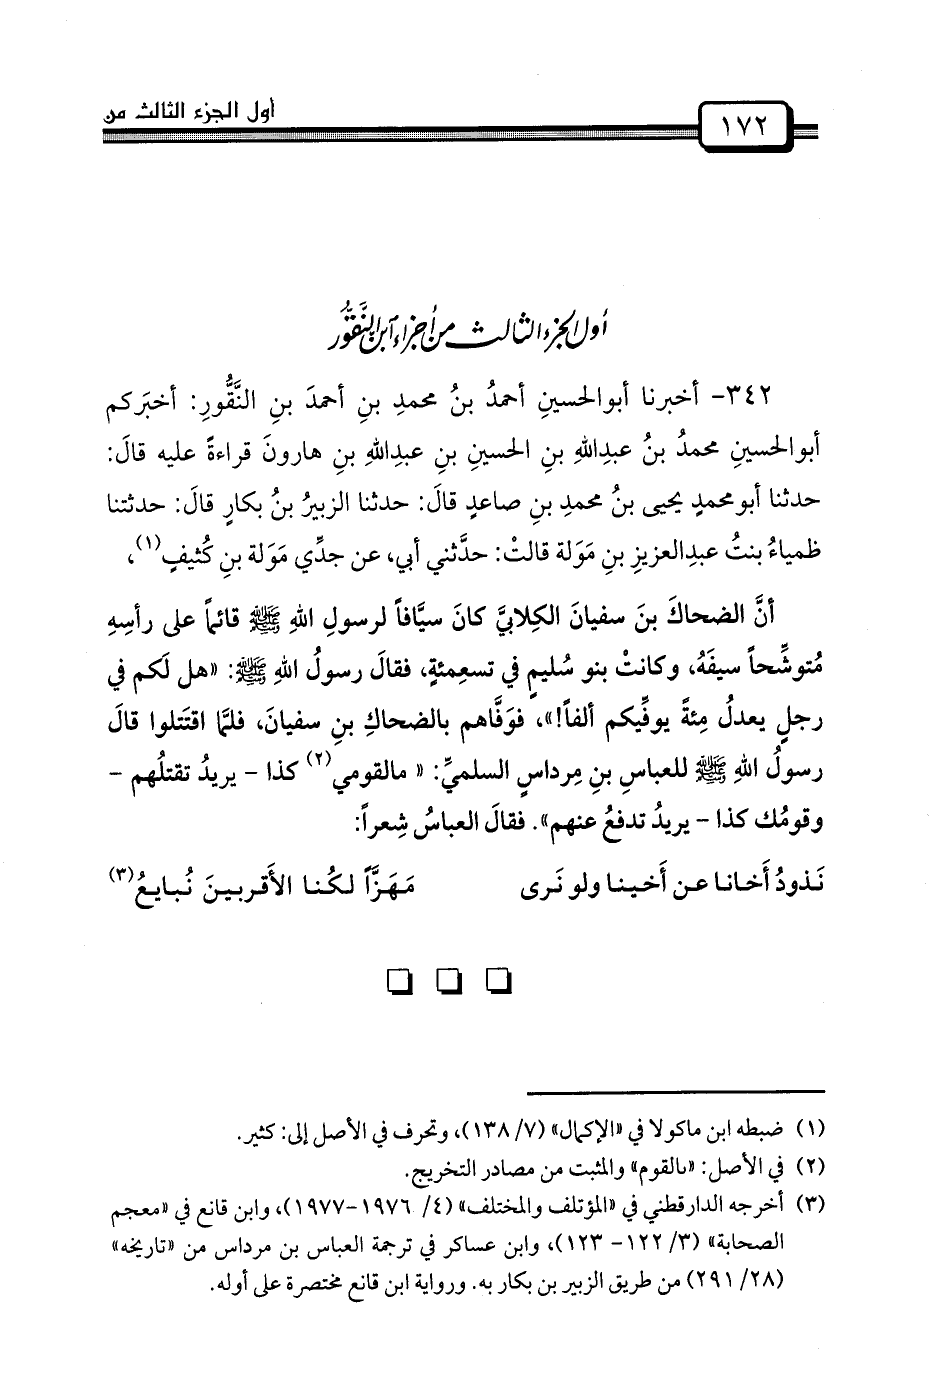 أول الجزء الثالث من
١٧٢
أول الجزء الثالث من أجزاء ابن النَّقُّور
٣٤٢- أخبرنا أبوالحسينِ أحمدُ بنُ محمدِ بنِ أحمدَ بنِ النَّقُّورِ: أخبَركم
أبوالحسينِ محمدُ بنُ عبدِاللهِ بنِ الحسينِ بنِ عبدِاللهِ بنِ هارونَ قراءةً عليه قالَ:
حدثنا أبومحمدٍ يحيى بنُ محمدِ بنِ صاعدٍ قالَ: حدثنا الزبيرُ بنُ بكارٍ قالَ: حدثتنا
ظمياءُ بنتُ عبدِالعزيزِ بنِ مَوَلة قالتْ: حدَّثني أبي، عن جدِّي مَوَلة بنِ كُثيفٍ(١)،
أنَّ الضحاكَ بنَ سفيانَ الكِلابيَّ كانَ سيَّافاً لرسولِ اللهِ ﷺ قائماً على رأسِهِ
مُتوشِّحاً سيفَهُ، وكانتْ بنو سُليمٍ في تسعِمئةٍ، فقالَ رسولُ اللهِ ﷺ: «هل لَكم في
رجلٍ يعدلُ مِئةً يوفِّيكم ألفاً!»، فوَفَّاهم بالضحاكِ بنِ سفيانَ، فلمَّا اقتَتلوا قالَ
رسولُ اللهِ ﷺ للعباسِ بنِ مِرداسٍ السلميِّ: « مالقومي(٢) كذا – يريدُ تقتلُهم –
وقومُك كذا – يريدُ تدفعُ عنهم». فقالَ العباسُ شِعراً:
نَذودُ أخانا عن أخينا ولو نَرى مَهَزَّاً لكُنا الأَقربينَ نُبايعُ(٣)
(١) ضبطه ابن ماكولا في «الإكمال» (٧/ ١٣٨)، وتحرف في الأصل إلى: كثير.
(٢) في الأصل: «بالقوم» والمثبت من مصادر التخريج.
(٣) أخرجه الدارقطني في «المؤتلف والمختلف» (٤/ ١٩٧٦-١٩٧٧)، وابن قانع في «معجم
الصحابة» (٣/ ١٢٢- ١٢٣)، وابن عساكر في ترجمة العباس بن مرداس من «تاريخه»
(٢٨/ ٢٩١) من طريق الزبير بن بكار به. ورواية ابن قانع مختصرة على أوله.